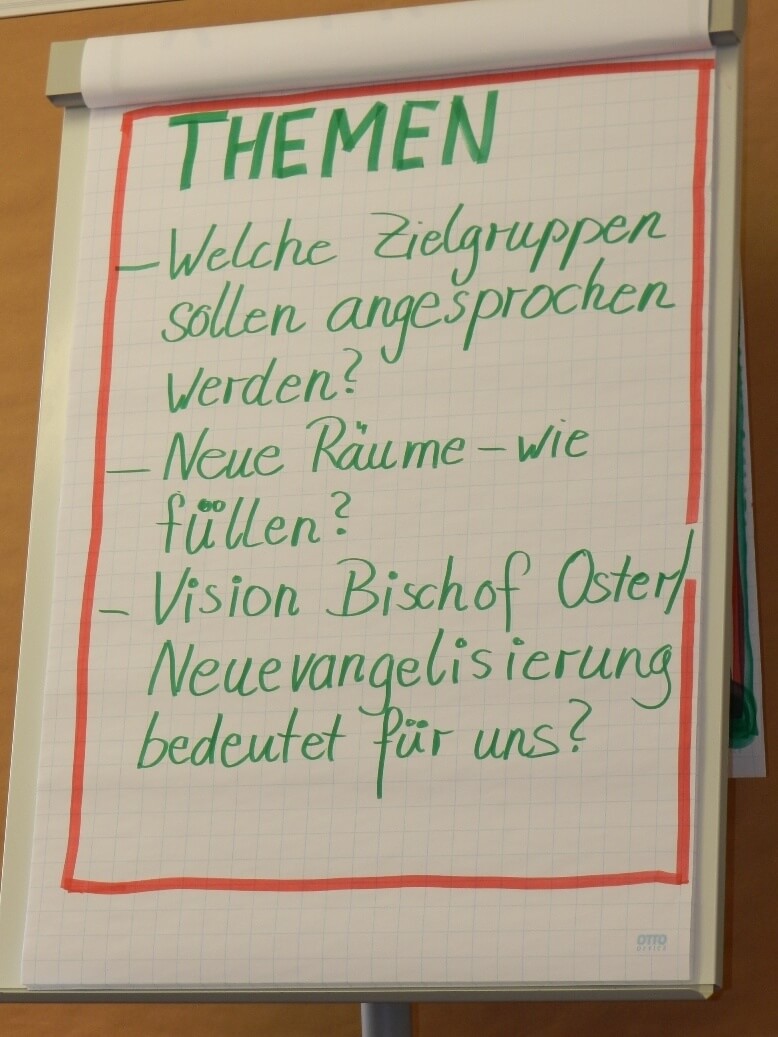 THEMEN
– Welche Zielgruppen
sollen angesprochen
werden?
– Neue Räume – wie
füllen?
– Vision Bischof Oster/
Neuevangelisierung
bedeutet für uns?
OTTO